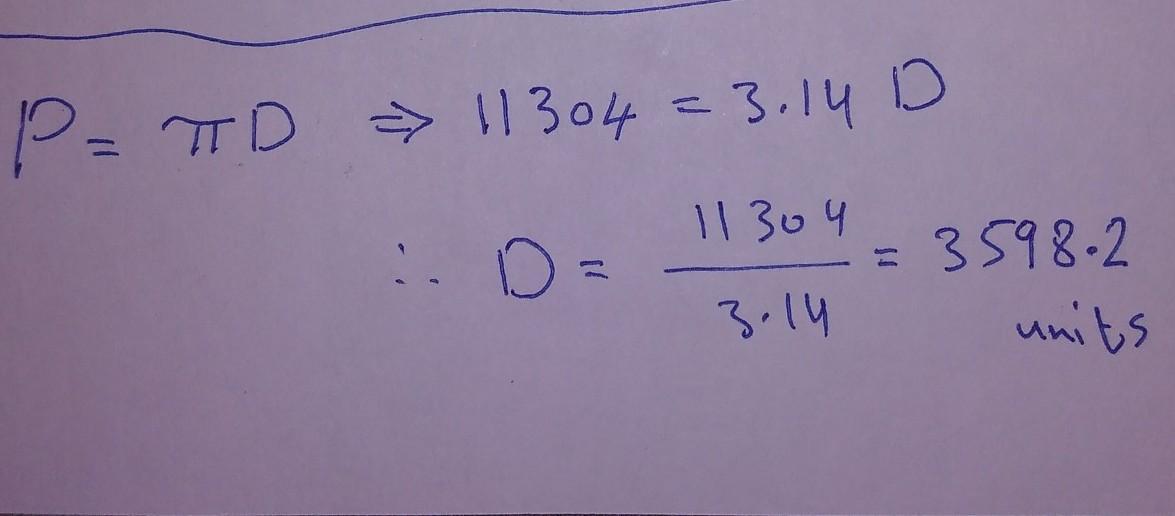 P = πD ⇒ 11304 = 3.14 D
∴ D = 11304 / 3.14 = 3598.2
units